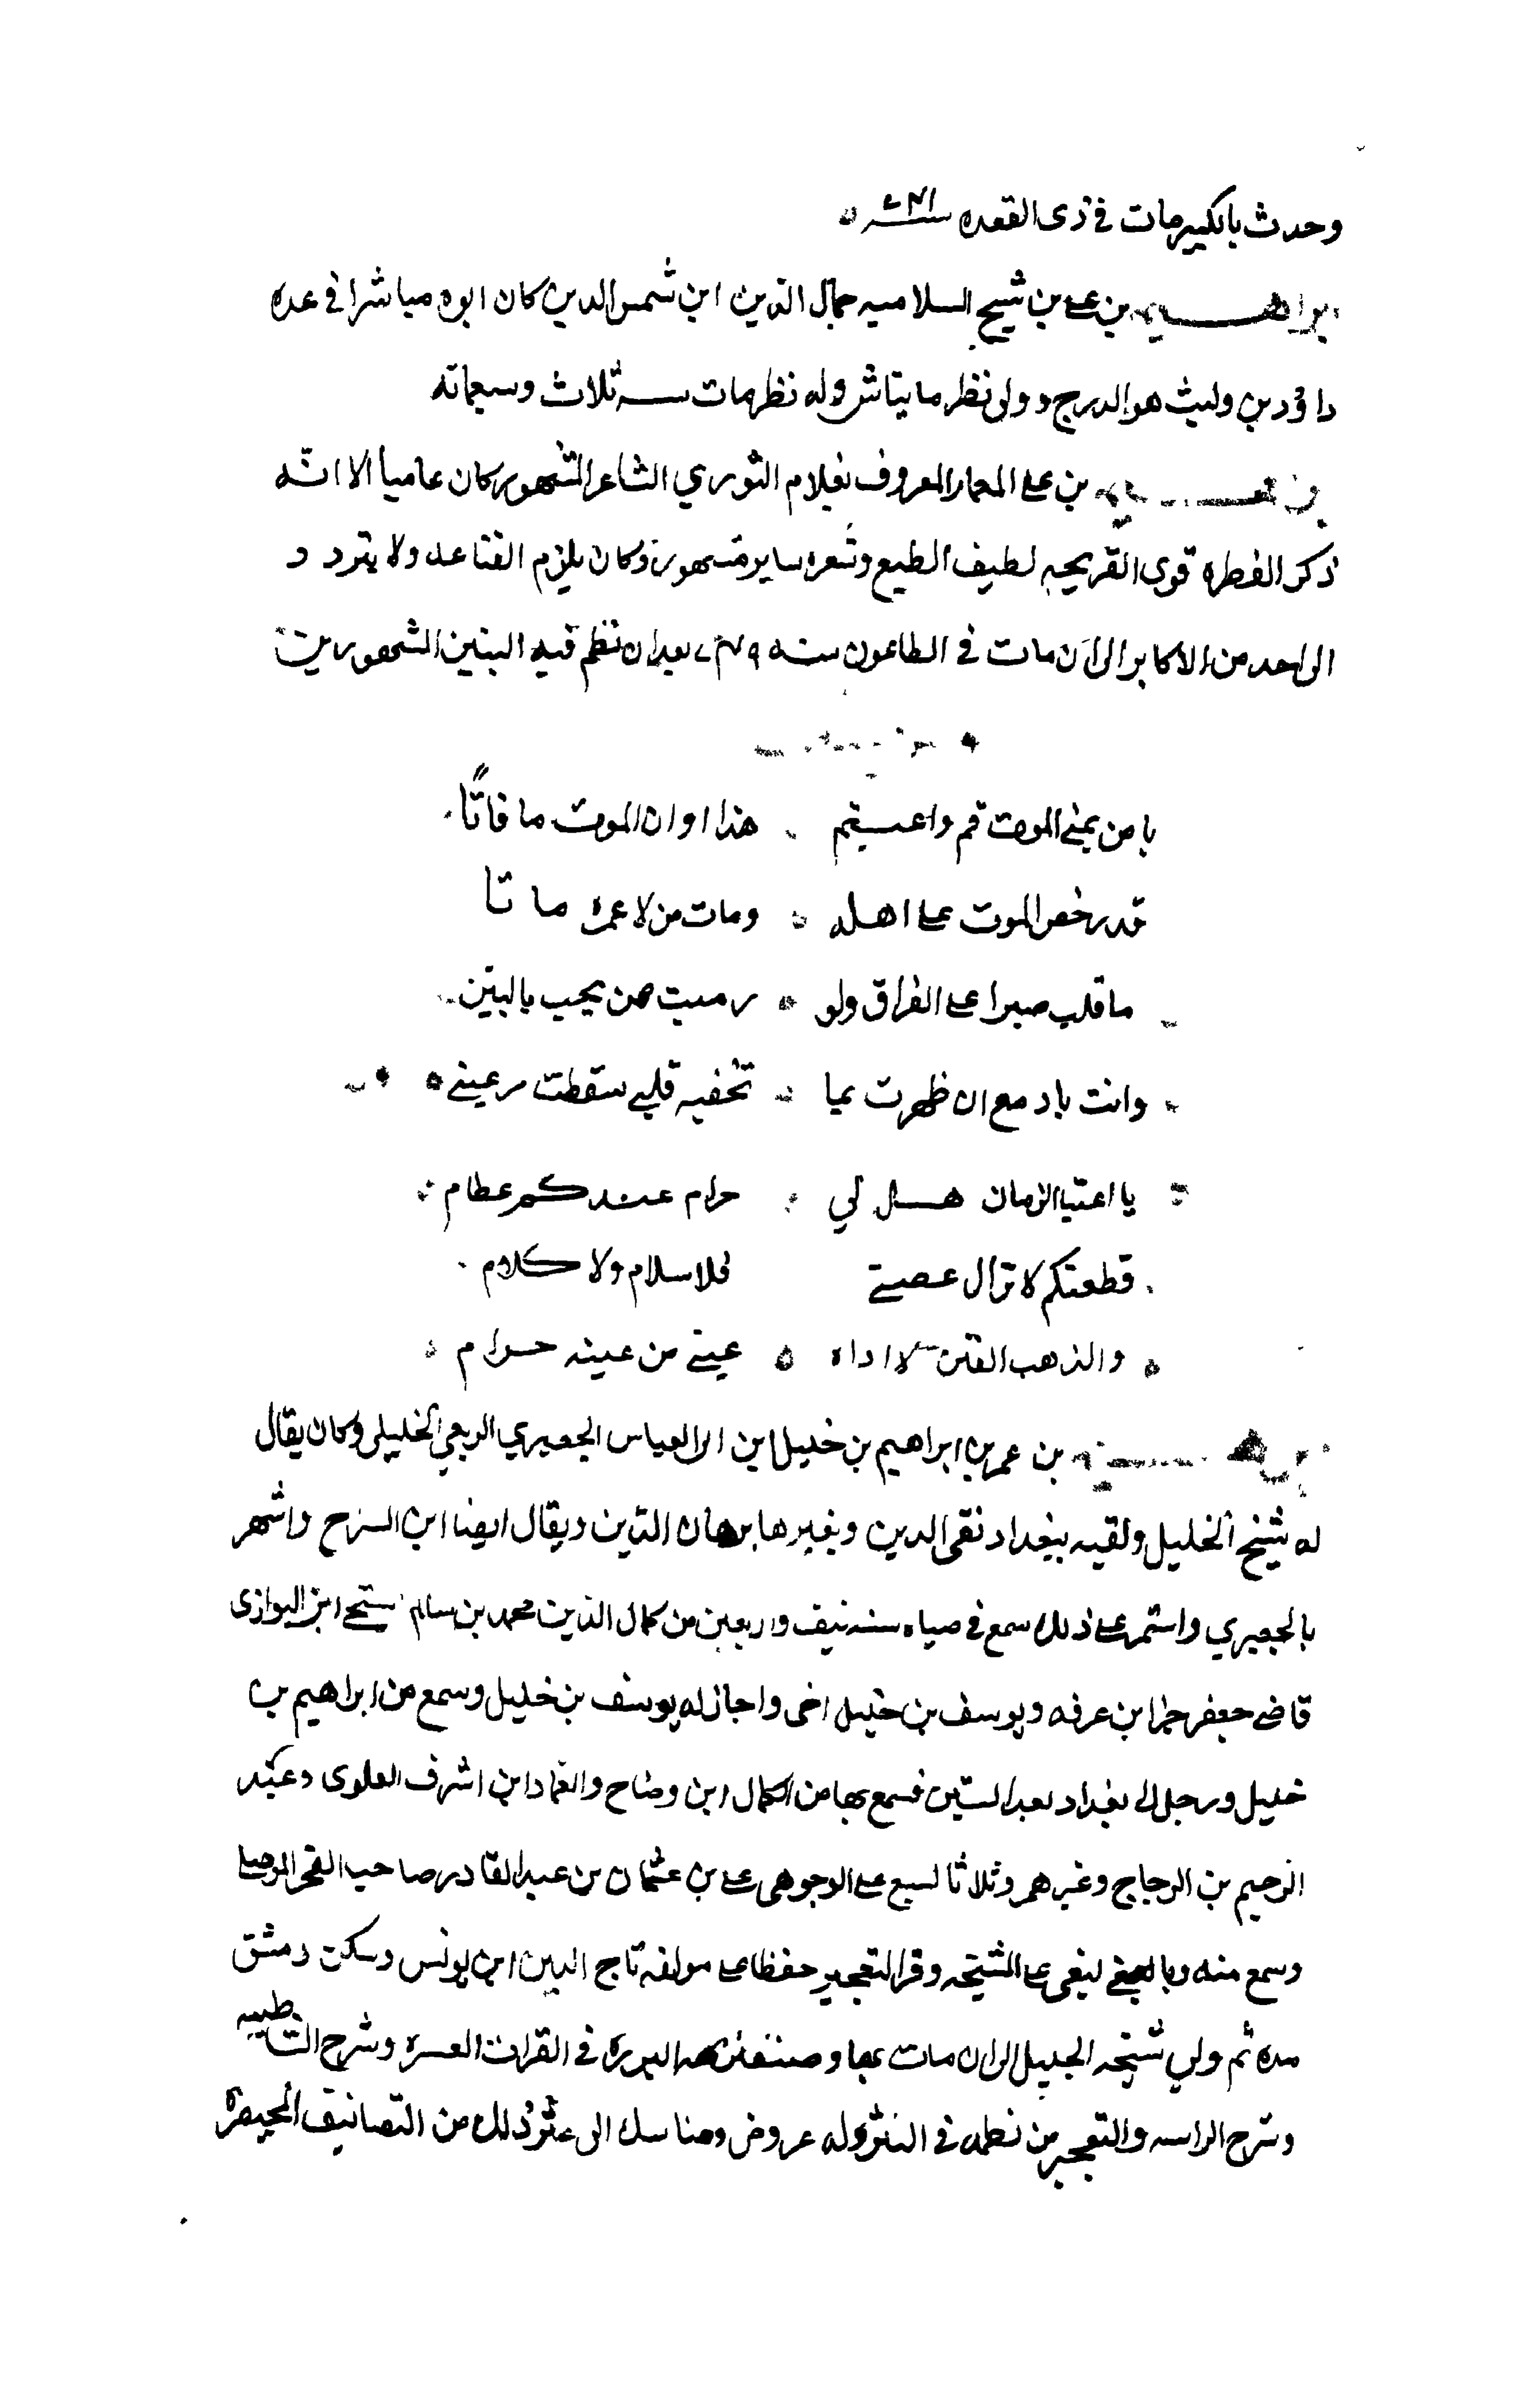 وحدث بالكثير مات فى ذى القعده سنه ٧٤١
ابراهيم بن على بن شيخ السلاميه جمال الدين ابن شمس الدين كان ابوه مباشرا فى عده
داؤد بن وليث هو الدرج وولى نظر مايتاش وله نظر مات سنه ثلاث وسبعمائه
بن على المعمار المعروف بغلام النوري الشاعر المشهور كان عاميا الا انه
ذكى الفطره قوى القريحه لطيف الطبع وشعره ساير مشهور وكان يلزم القناعه ولا يتردد
الى احد من الاكابر الى ان مات فى الطاعون سنه ٧٤٩ بعد ان نظم فيه البيتين المشهورين
يا من تمنى الموت قم واغتنم هذا اوان الموت ما فاتا
قد رخص الموت على اهله ومات من لا عمره ماتا
ما قلب صبرا على الفراق ولو رميت ممن يحب بالبين
وانت يا دمع ان ظهرت بما تخفيه قلبي سقطت من عيني
يا اغنيا الزمان هل لي حرام عندكم عظام
قطعتكم لا تزال غصبى فلا سلام ولا كلام
والذهب العين لا اراه عينى من عينه حرام
بن عمر بن ابراهيم بن خليل ابن ابى العباس الجعبري الربعي الخليلى وكان يقال
له شيخ الخليل ولقبه ببغداد تقى الدين وبغيرها برهان الدين ويقال ايضا ابن السراج واشهر
بالجعبري واستمر على ذلك سمع فى صباه سنه نيف واربعين من كمال الدين محمد بن سالم المنبجى ابن البوازى
قاضى جعبر جزا بن عرفه ويوسف بن خليل اخى واجاز له يوسف بن خليل وسمع من ابراهيم بن
خليل ورحل الى بغداد بعد الستين فسمع بها من الكمال ابن وضاح والعماد ابن اشرف العلوى وعبد
الرحيم بن الزجاج وغيرهم وتلا ثا لسبع على الوجوهى على بن عثمان بن عبد القادر صاحب الفخر الموصلى
وسمع منه وبا لبقى على الشيخه وقرا التعجيز حفظا على مولفه تاج الدين ابن يونس وسكن دمشق
مده ثم ولي شيخه الخليل الى ان مات بها وصنف نزهه البرره فى القرات العشره وشرح الشاطبيه
وشرح الرائيه والتعجيز من نظمه فى النثر وله عروض ومناسك الى غير ذلك من التصانيف المختصره